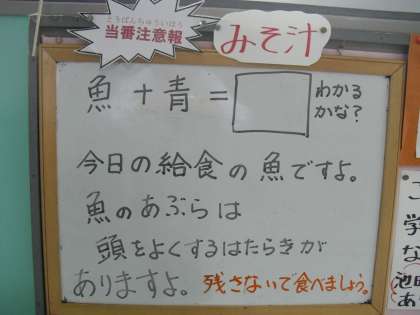 とうばんちゅういほう
当番注意報
みそ汁
魚 + 青 = □ わかる
かな?
今日の給食の魚ですよ。
魚のあぶらは
頭をよくするはたらきが
ありますよ。残さないで食べましょう。
学
な
池
あ